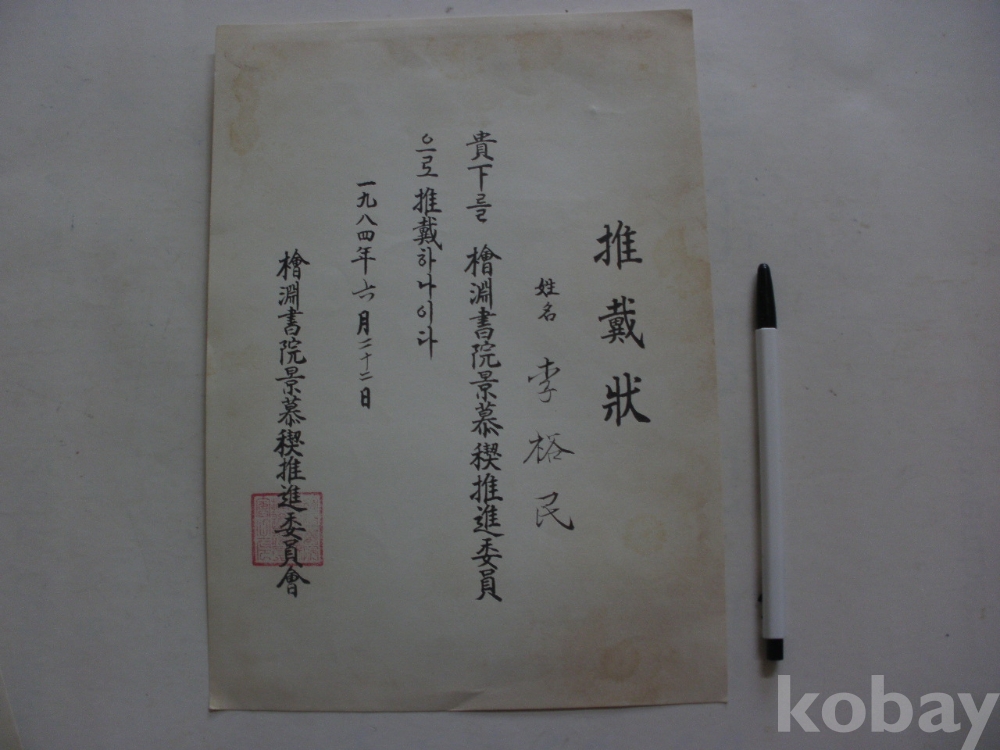 推戴狀
姓名 李裕民
貴下를 檜淵書院景慕稧推進委員
으로 推戴하나이다
一九八四年 六月 二十二日
檜淵書院景慕稧推進委員會
kobay